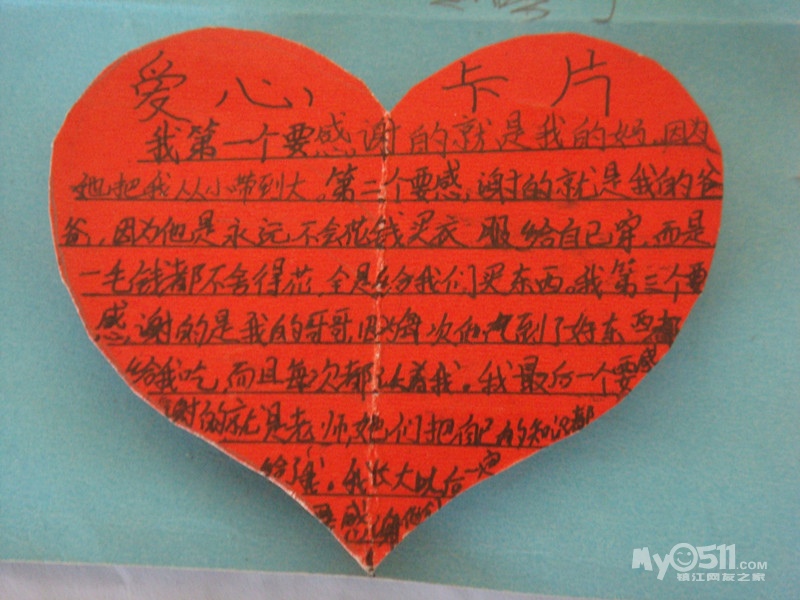 爱心卡片
我第一个要感谢的就是我的妈,因为
她把我从小带到大。第二个要感谢的就是我的爸
爸,因为他是永远不会花钱买衣服给自己穿,而是
一毛钱都不舍得花,全是给我们买东西。我第三个要
感谢的是我的哥哥,因为每次他拿到了好东西都
给我吃,而且每次都让着我。我最后一个要感
谢的就是老师,她们把自己的知识都
给了我。我长大以后一定
要感谢他们
!
My0511.COM
镇江网友之家